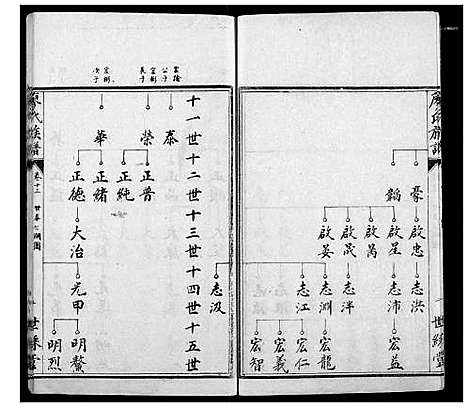 廖氏族譜
豪
韜
啟忠
啟星
啟萬
啟晟
啟晏
志洪
志沛
志泮
志淵
志江
志汲
宏益
宏龍
宏仁
宏義
宏智
世綵堂
十一世十二世十三世十四世十五世
公子
宏彬
長子
宏彬
次子
泰
榮
華
正普
正純
正緒
正德
大治
光甲
明鰲
明烈
廖氏族譜
卷十三
世綵堂